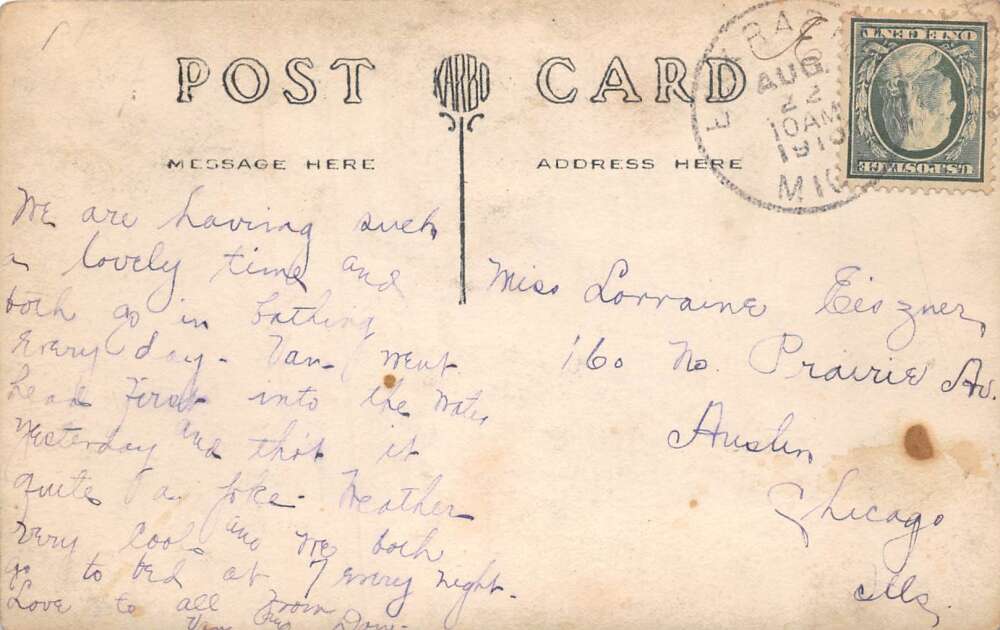 POST CARD
KARBO
MESSAGE HERE
ADDRESS HERE
AUG
22
10AM
1910
MICH
ONE CENT
U.S. POSTAGE
We are having such
a lovely time and
both go in bathing
Every day - Van - went
head first into the water
yesterday and tho't it
quite a joke. Weather
very cool, and we both
go to bed at 7 every night.
Love to all from
Miss Lorraine Eiszner,
160 No. Prairie Av.
Austin,
Chicago
Ills.